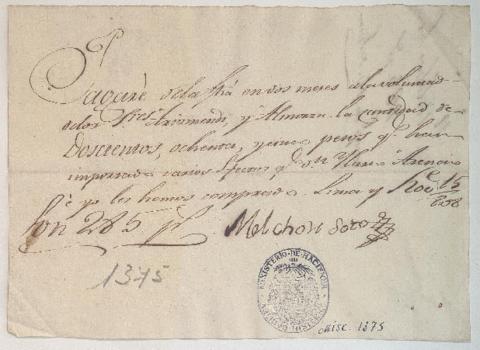 Pagaré dela fha en dos meses ala voluntad
delos Sres Arizmendi, y Almara la cantidad de
Dosientos, ochenta, y cinco pesos q.e han
importado varios efectos q.e Dn
q.e les hemos comprado. Lima y 15
Son 285 ps Melchor Soto
1375
MINISTERIO DE HACIENDA
ARCHIVO HISTORICO
Misc. 1375